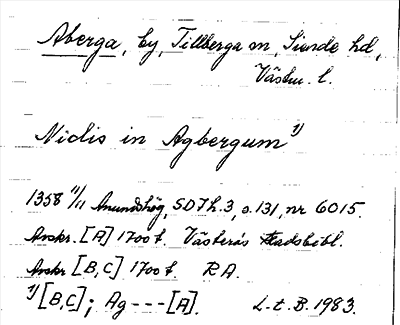 Aberga, by, Tillberga sn, Siende hd,
Västm. l.
Niclis in Agbergum ¹⁾
1358 11/11 Anundshög, SD 7 h.3, s. 131, nr 6015.
Avskr. [A] 1700 t. Västerås Stadsbibl.
Avskr [B, C] 1700 t. RA.
¹⁾ [B, C]; Ag --- [A]. L. t. B. 1983.